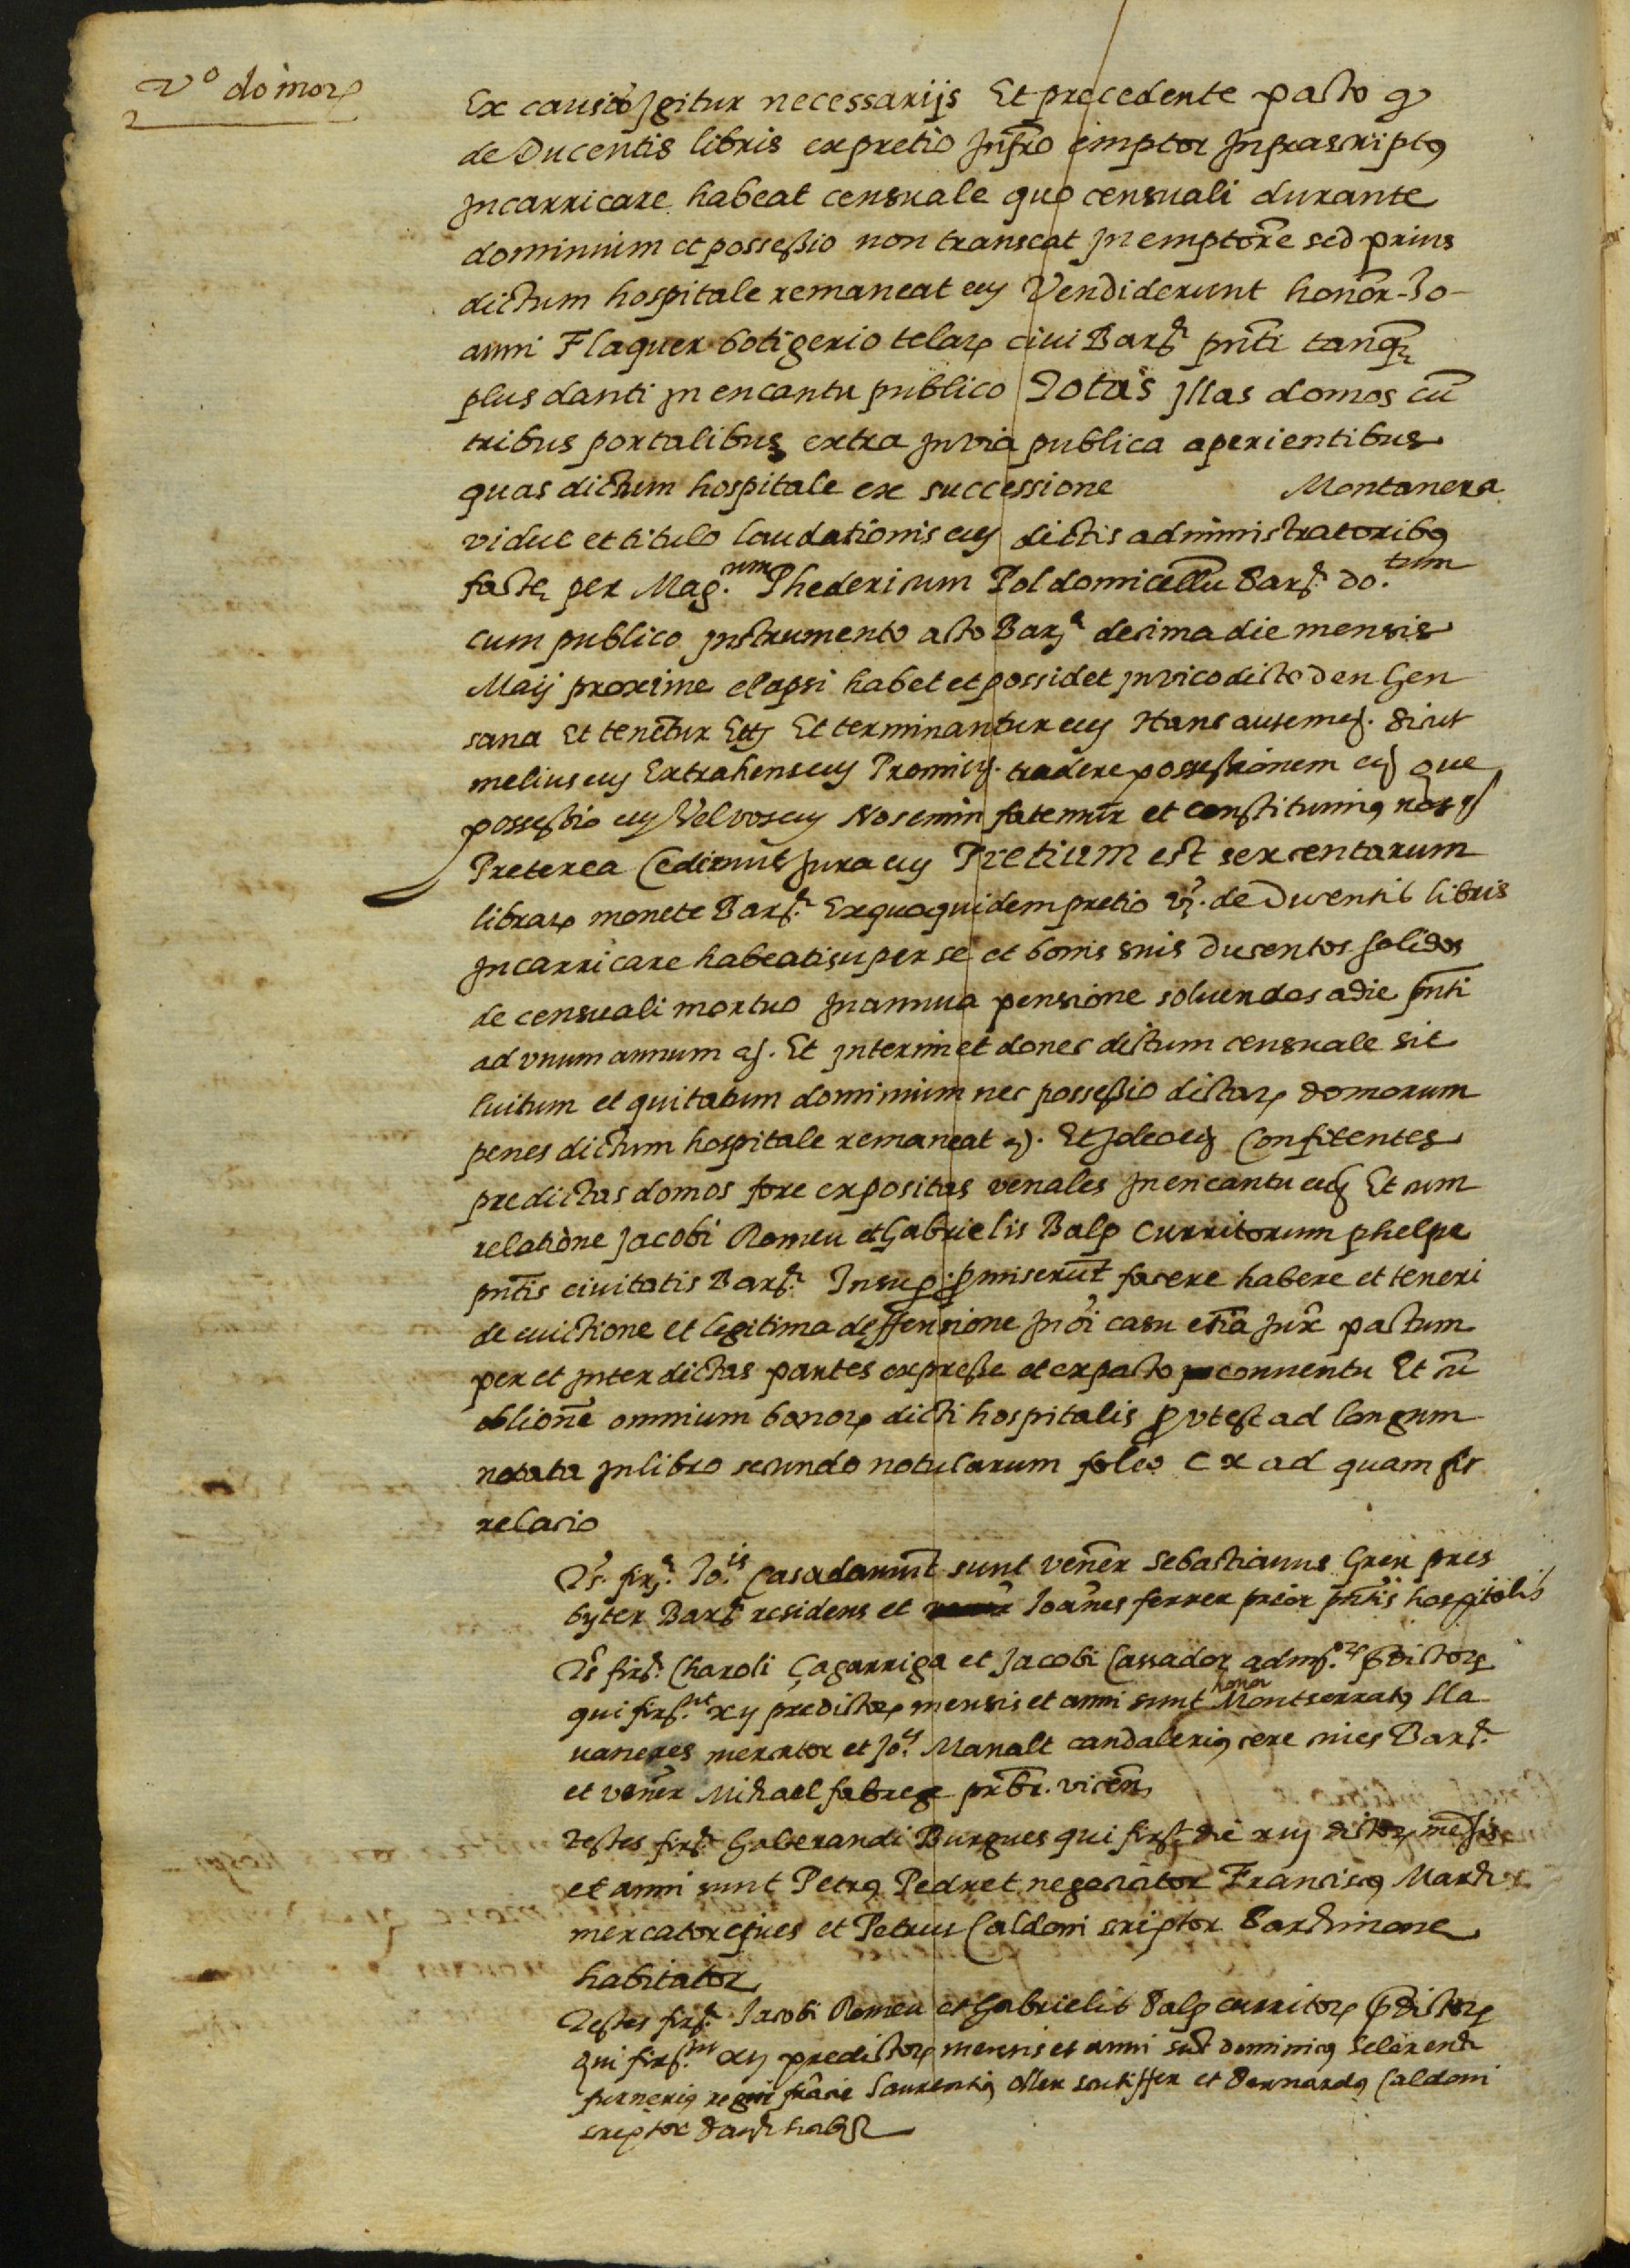 Vº domoꝝ
Ex causis igitur necessarijs Et precedente pacto qᵈ
de Ducentis libris ex pretio Infrõ emptor Infrascriptꝯ
Incarricare habeat censuale quo censuali durante
dominium et possessio non transeat In emptorẽ sed prius
dictum hospitale remaneat etc̃ Vendiderunt honor. Jo-
anni Flaquer botigerio telaꝝ ciui Barᵉ pnt̃i tanqꝫ
plus danti In encantu publico Totas Illas domos cũ
tribus portalibus extra In via publica aperientibus
quas dictum hospitale ex successione Montanera
vidue et titulo laudationis etc̃ dictis administratoribꝯ
facte per Mag.ᶜᵘᵐ Phedericum Pol domicellũ Barᵉ do.ᵗᵘᵐ
cum publico Instrumento acto Barᵉ decima die mensis
Maij proxime elapsi habet et possidet In vico dicto den Gen
sana Et tenẽtur Etc̃ Et terminantur etc̃ Hanc autem etc̃. Sicut
melius etc̃ Extrahens etc̃ Promitt̃. tradere possessionem etc̃ que
possessio etc̃ Vel vos etc̃ Nos enim fatemur et constituimꝯ nos etc̃
Preterea Cedimus Jura etc̃ Pretium est sexcentarum
libraꝝ monete Barᵉ. Ex quo quidem pretio vz̃. de Ducentis libris
Incarricare habeatis super se et bonis suis Ducentos solidos
de censuali mortuo In annua pensione soluendos a die pnt̃i
ad vnum annum etc̃. Et Interim et donec dictum censuale sit
luitum et quitatum dominium nec possessio dictaꝝ domorum
penes dictum hospitale remaneat etc̃. Et Ideo etc̃ Confitentes
predictas domos fore expositas venales In encantu etc̃ Et cum
relatione Jacobi Romeu et Gabrielis Balp Curritorum phelpe
pnt̃is ciuitatis Barᵉ. Insuꝑ ꝓmiserũt facere habere et teneri
de euictione et legitima deffensione In õi casu etiã Jur̃ pactum
per et Inter dictas partes expresse et ex pacto conuentu Et cũ
oblionẽ omnium bonoꝝ dicti hospitalis ꝓ vt est ad longum
notata In libro secundo notularum foleo C x ad quam fit
relacio
Ts̃ firᵉ. Jo.ⁱˢ Casadamunt sunt veñer Sebastianus Grer pres
byter Barᵉ residens et Joañes ferrer prior pnt̃is hospitalis
Ts̃ firᵉ. Charoli Çagarriga et Jacobi Cassador admſ.ᵒꝝ p̃dictoꝝ
qui firᵉ.ⁿᵗ xij predictoꝝ mensis et anni sunt honor Montserratꝯ lla
uaneres mercator et Jo.ˢ Manalt candalerius cere ciues Barᵉ.
et veñer Michael fabrege pr̃bt̃. vicen̄
Testes firᵉ Galcerandi Burgues qui firᵗ die xiij dictoꝝ mẽsis
et anni sunt Petrꝯ Pedret negociator Franciscꝯ March
mercator ciues et Petrus Caldoni scriptor Barchinone
habitator
Testes firᵉ. Jacobi Romeu et Gabrielis Balp curritoꝝ p̃dictoꝝ
qui firᵉ.ⁿᵗ xij predictoꝝ mensis et anni sũt dominicꝯ
furnerius regni francie Laurentiꝯ oller scutiffer et Bernardꝯ Caldoni
scriptor Barᵉ habᵉˢ